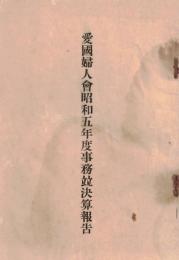 愛國婦人會昭和五年度事務竝決算報告